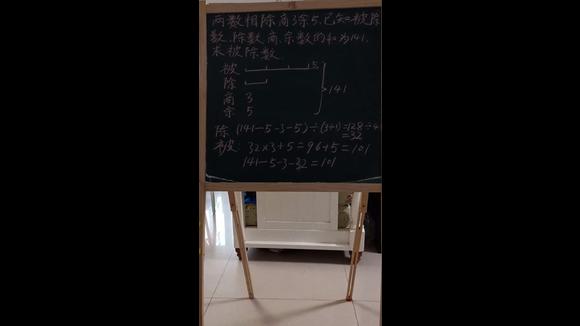 两数相除商3余5,已知被除
数、除数、商、余数的和为141,
求被除数.
被 5
除
商 3
余 5
141
除 (141-5-3-5)÷(3+1)=128÷4
=32
被: 32×3+5=96+5=101
141-5-3-32=101